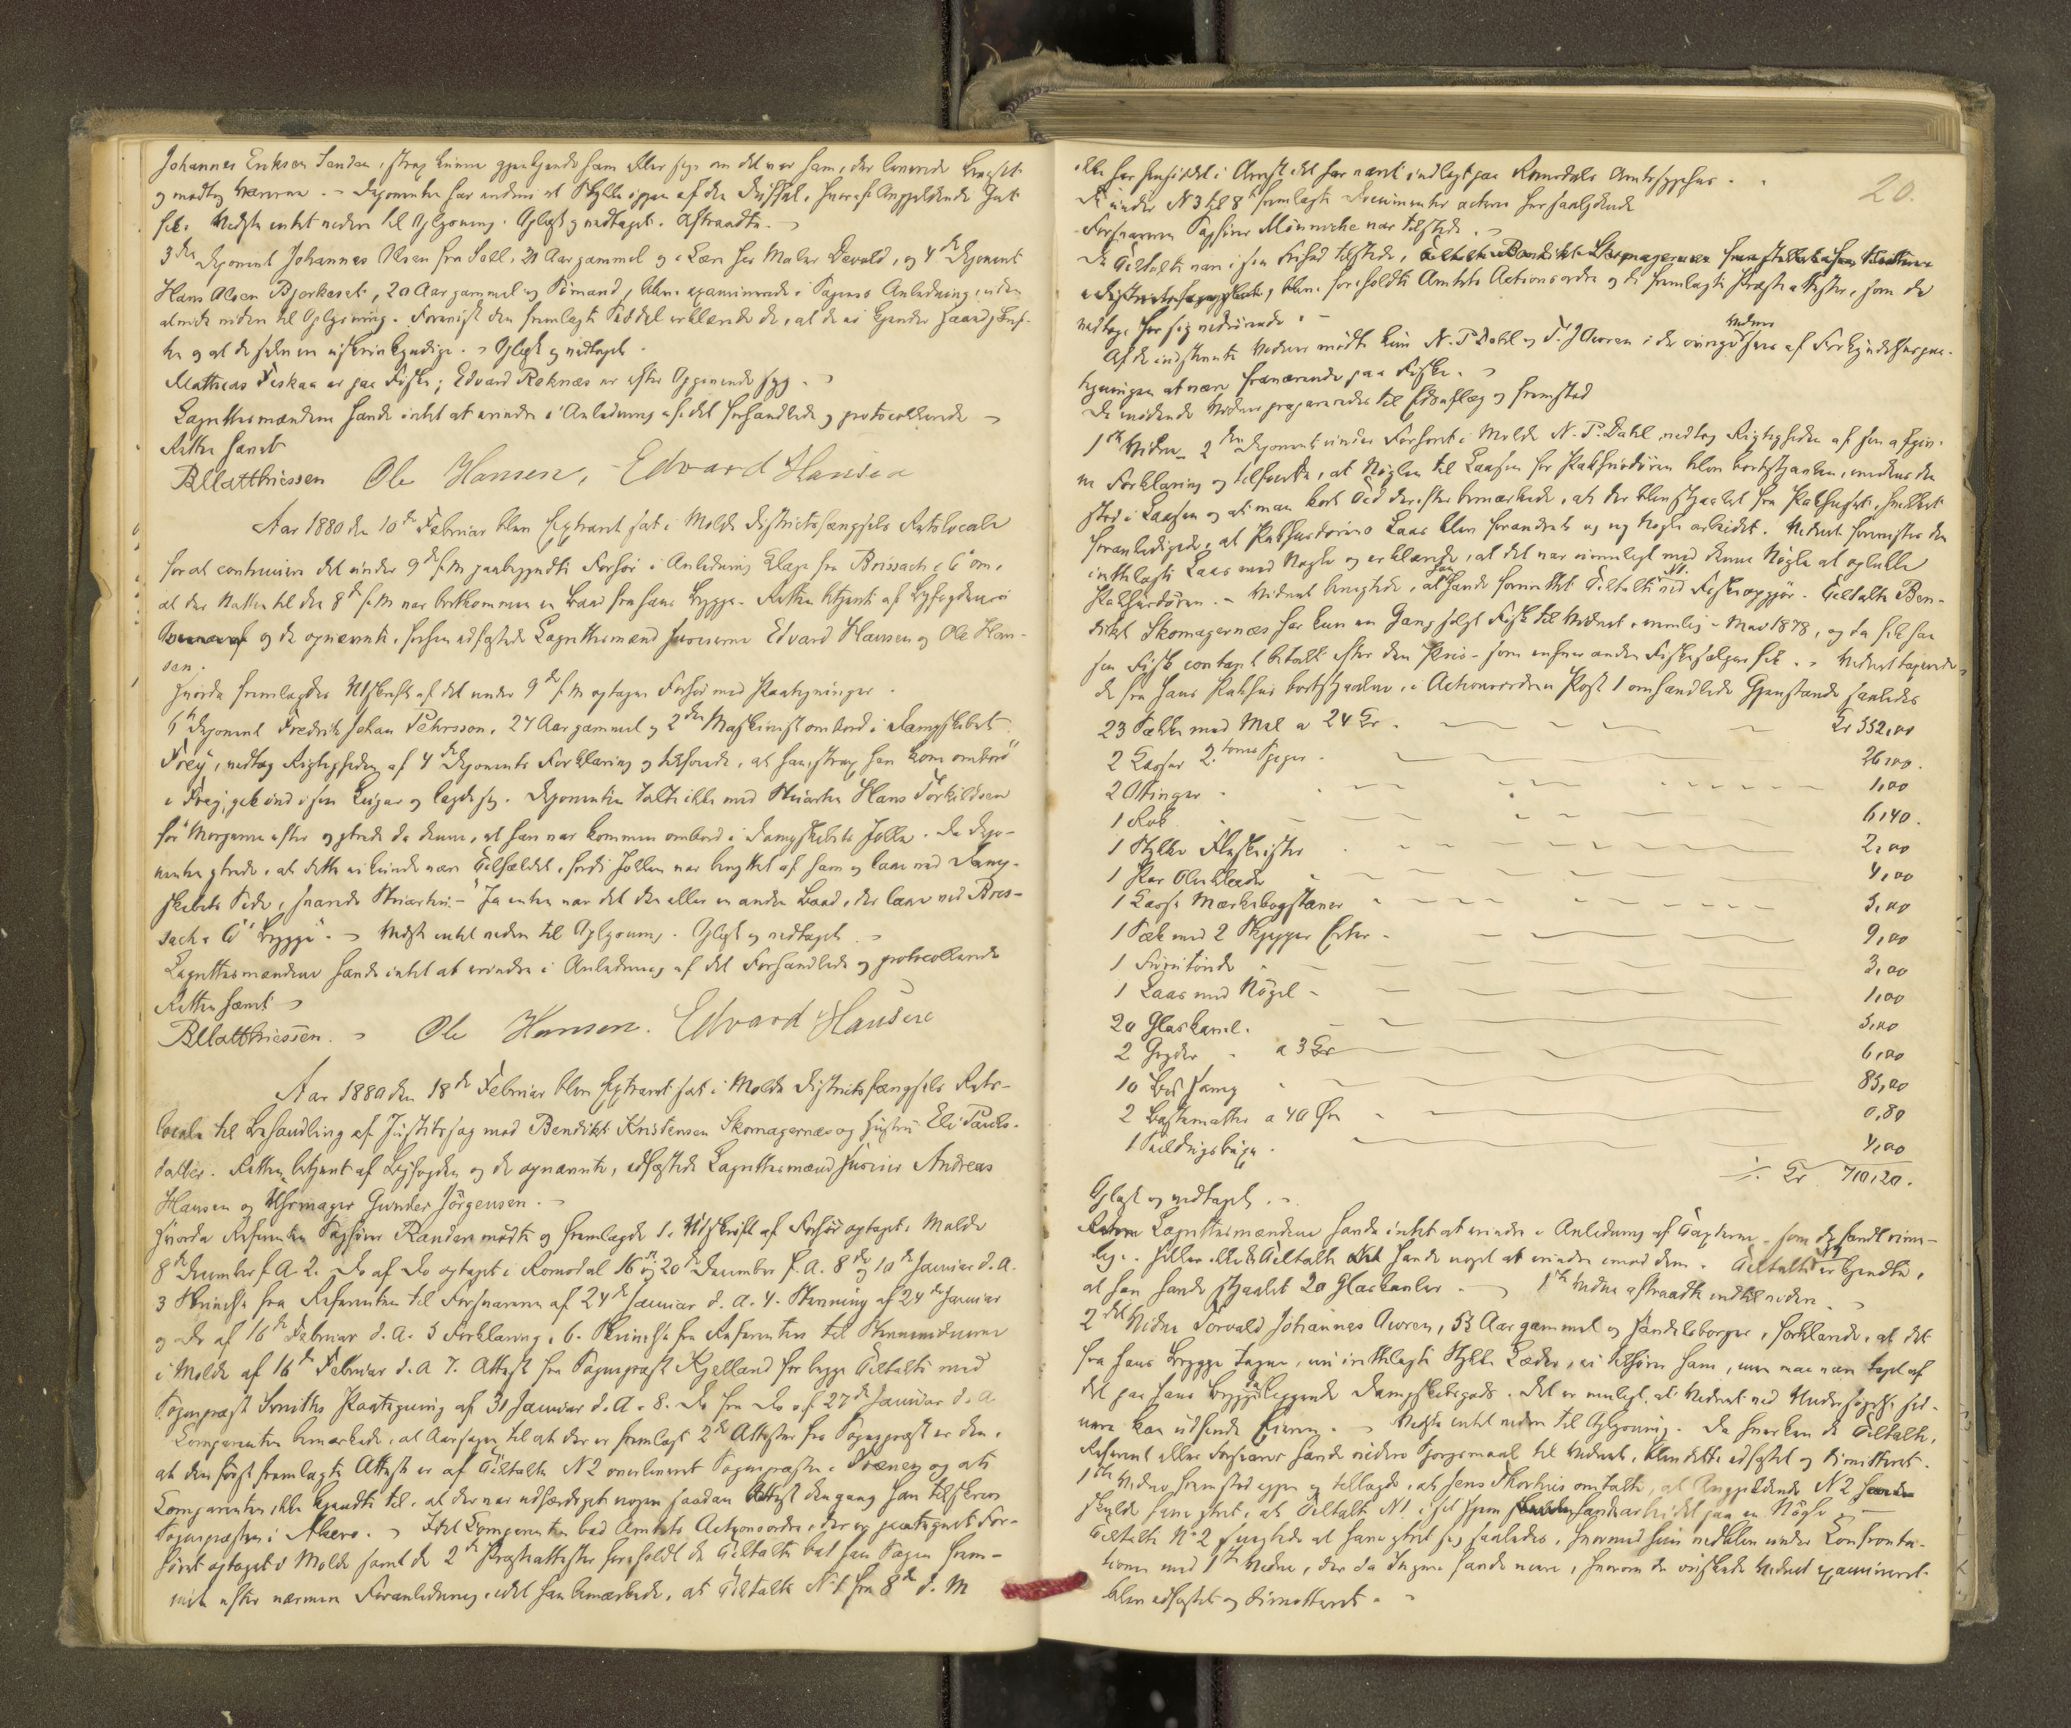 Johannes Eriksen Sanden, strax kunne gjenkjende ham eller sige om det var ham, der leverede Brevet
og modtog Varerne. - Deponenten har endnu et Stykke igjen af den Kuffert, hvoraf Angjeldende
fik. Vidste intet videre til Oplysning. Oplæst og vedtaget. Aftraadte. -
3die Deponent Johannes Olsen fra Sall, 21 Aar gammel og i Lære hos Maler Devold, og 4de Deponent
Hans Olsen Bjerkeset, 20 Aar gammel og Sømand, blev examinerede i Sagens Anledning, uden
at vide noget til Oplysning. Forevist den fremlagte Seddel erklærede de, at de ei kjender Haandskrif-
ten og at de selv er uskrivekyndige. - Oplæst og vedtaget.
Mathias Fiskaa er paa Fiske; Edvard Reknæs er efter Opgivende syg. -
Lagrettesmændene havde intet at erindre i Anledning af det forhandlede og protocollerede -
Retten hævet
B Matthiessen Ole Hansen, Edvard Hansen
Aar 1880 den 10de Februar blev Extraret sat i Molde Districtsfængsels Retslocale
for at continuere det under 9de f. M. paabegyndte Forhør i Anledning Klage fra Brissach & Co om,
at der Natten til den 8de f. M. var bortkommen en Baad fra hans Brygge. Retten betjent af Byfogden i
og de opnævnte, forhen edfæstede Lagrettesmænd Edvard Hansen og Ole Han-
sen.
Hvorda fremlagdes Udskrift af det under 9de f. M. optagne Forhør med Paategninger.
5te Deponent Fredrik Johan Pehrsson, 27 Aar gammel og 2den Maskinist ombord i Dampskibet
"Frey", vedtog Rigtigheden af 4de Deponents Forklaring og tilføiede, at han, strax han kom ombord
i Frey, gik ind i sin Lugar og lagde sig. Deponenten talte ikke med Stuarten Hans Torkildsen
før Morgenen efter og ytrede da denne, at han var kommen ombord i Dampskibets Jolle. Da Depo-
nenten ytrede, at dette ei kunde være Tilfældet, fordi Jollen var benyttet af ham og laa ved Damp-
skibets Side, svarede Stuarten: - "Ja enten var det den eller en anden Baad, der laa ved Bris-
sach & Co Brygge". - Vidste intet videre til Oplysning. Oplæst og vedtaget. -
Lagrettesmændene havde intet at erindre i Anledning af det Forhandlede og protocollerede
Retten hævet -
B Matthiessen. - Ole Hansen. Edvard Hansen
Aar 1880 den 18de Februar blev Extraret sat i Molde Districtsfængsels Rets-
locale til Behandling af Justitssag mod Bendikt Kristensen Skomagernæs og Hustru Eli Pauls-
datter. Retten betjent af Byfogden og de opnævnte, edfæstede Lagrettesmænd Andreas
Hansen og Uhrmager Gunder Jörgensen. -
Hvorda Referenten Sagfører Randers mødte og fremlagde 1. Udskrift af Forhør optaget i Molde
8de December f. A. 2. Do af Do optaget i Romsdal 16de og 20de December f. A. 8de og 10de Januar d. A.
3 Skrivelse fra Referenten til Forsvareren af 24de Januar d. A. 4. Stevning af 24de Januar
og Do af 16de Februar d. A. 5 Forklaring, 6. Skrivelse fra Referenten til
i Molde af 16de Februar d. A 7. Attest fra Sognepræst Kjelland for begge Tiltalte med
Sognepræst Smiths Paategning af 31 Januar d. A. 8. Do fra Do af 27de Januar d. A
Comparenten bemærkede, at Aarsagen til at der er fremlagt 2de Attester fra Sognepræst er den,
at den først fremlagte Attest er af Tiltalte N 2 overleveret Sognepræsten i og at
Comparenten ikke kjendte til, at der var udfærdiget nogen saadan Attest dengang han tilskrev
Sognepræsten i Akerø. - Idet Comparenten bad Amtets Actionsordre, der og paategnet For-
høret optaget i Molde samt de 2de Præsteattester foreholdt de Tiltalte bad han Sagen frem-
mit efter nærmere Foranledning, idet han bemærkede, at Tiltalte N 1 fra 8de d. M
20.
ikke har henseddet i Arrest idet har været indlagt paa Romsdals Amtssygehus. -
De under N 3 til 8 fremlagte Documenter acteres hersaalydende
Forsvareren Sagfører Mönniche var tilstede. -
De Tiltalte var i fri Frihed tilstede,
blev foreholdte Amtets Actionsordre og de fremlagte Præsteattester, som de
vedtoge for sig vedrørende. -
Af de indstevnte Vidner mødte kun N. P Dahl og T. J Aworen i de øvrige Vidner af Forkyndelsespaa-
tegningen at være fraværende paa Fiske. -
De mødende Vidner præpareredes til Edsaflæg og fremstod
1ste Vidne - 2den Deponent under Forhøret i Molde N. P. Dahl vedtog Rigtigheden af sin afgiv-
ne Forklaring og tilføiede, at Nøglen til Laasen for Pakhusdøren blev bortstjaalen, medens den
stod i Laasen og at man kort Tid derefter bemærkede, at der blev stjaalet fra Pakhuset, hvilket
foranledigede, at Pakhusdørens Laas blev forandret og ny Nøgle arbeidet. Vidnet forevistes den
indkøbte Laas med Nøgle og erklærede, at det var umuligt med denne Nøgle at oplukke
Pakhusdøren. - Vidnet benægtede, at han havde forurettet Tiltalte N 1 ved Fiskeopgjør. Tiltalte Ben-
dikt Skomagernæs har kun en Gang solgt Fisk til Vidnet, nemlig i Mai 1878, og da fik han
sin Fisk contant betalt efter den Pris, som enhver anden Fiskesælger fik. - Vidnet taxerede
de fra hans Pakhus bortstjaalne, i Actionsordren Post 1 omhandlede Gjenstande saaledes
23 Sække med Mel a 24 Kr. Kr 552,00
2 Kasser 2 toms Spiger. 26,00.
2 Øltinger 1,00
1 Rok 6,40.
1 Stykke Flaskeister 2,00
1 Par Olieklæder 4,00
1 Kasse Mærkebogstaver 5,00
1 Sæk med 2 Skjepper Erter 9,00
1 Furutønde 3,00
1 Laas med Nögel 1,00
20 Glaskavel. 5,00
2 Gryder a 3 Kr 6,00
10 Bus Hamp 85,00
2 Bastmatter a 40 Øre 0,80
1 Seildugsbuxe 4,00
./. Kr 710,20.
Oplæst og vedtaget. -
Lagrettesmændene havde intet at erindre i Anledning af Taxterne, som de fandt rime-
lige. Heller ikke Tiltalte havde noget at erindre imod dem. Tiltalte N 1 erkjendte,
at han havde stjaalet 20 Glaskavler. - 1ste Vidne aftraadte indtil videre. -
2det Vidne Torvald Johannes Aworen, 53 Aar gammel og Handelsborger, forklarede, at det
fra hans Brygge tagne, nu indbragte Stykke Læder, ei tilhører ham, men maa være tagt af
det paa hans Brygge da liggende Dampskibsgods. Det er muligt, at Vidnet ved Undersøgelse sid-
nere kan udfinde Eieren. - Vidste intet videre til Oplysning. Da hverken de Tiltalte,
Referent eller Forsvarer havde videre Spørgsmaal til Vidnet, blev dette edfæstet og dimitteret.
1ste Vidne fremstod igjen og tillagde, at Jens Skorhus omtalte, at Angjeldende N 2
skulde have ytret, at Tiltalte N 1 i sit Hjem havde arbeidet paa en Nögle. -
Tiltalte N 2 benegtede at have ytret sig saaledes, hvorved hun vedblev under Confronta-
tionen med 1ste Vidne, der da ikke havde mere, hvorom de ønskede Vidnet examineret.
blev edfæstet og dimitteret. -